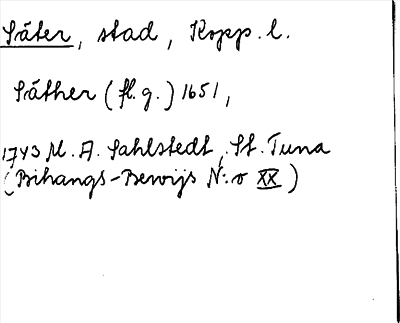 Säter, stad, Kopp. l.
Säther (fl. g.) 1651,
1743 M. A. Sahlstedt, St. Tuna
(Bihangs-Bewijs N:o XX)